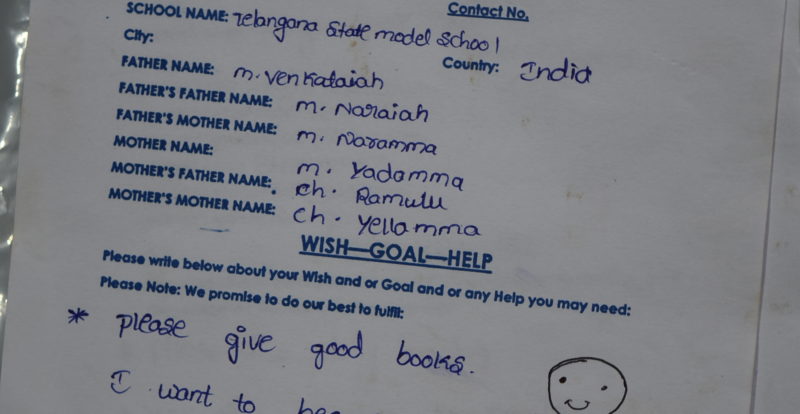 Contact No.
SCHOOL NAME: Telangana State model School
City:
Country: India
FATHER NAME: m. Venkataiah
FATHER'S FATHER NAME: m. Naraiah
FATHER'S MOTHER NAME: m. Naramma
MOTHER NAME: m. Yadamma
MOTHER'S FATHER NAME: ch. Ramulu
MOTHER'S MOTHER NAME: ch. Yellamma
WISH—GOAL—HELP
Please write below about your Wish and or Goal and or any Help you may need:
Please Note: We promise to do our best to fulfil:
* please give good books.
I want to